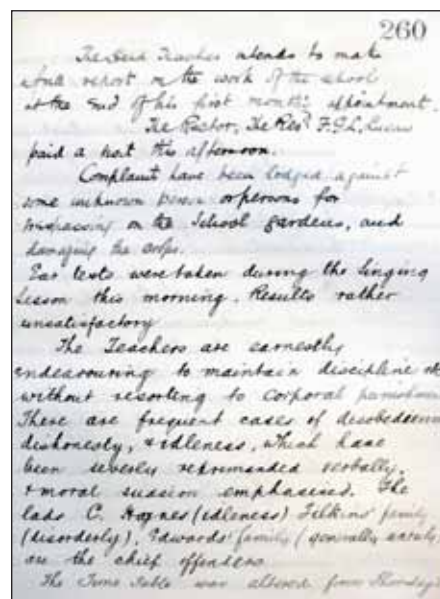 260
The Head Teacher intends to make
a full report on the work of the school
at the end of his first month's appointment.
The Rector, The Revd F.G.L. Lucas
paid a visit this afternoon.
Complaint have been lodged against
some unknown person or persons for
trespassing on the School gardens, and
damaging the crops.
Ear tests were taken during the Singing
lesson this morning. Results rather
unsatisfactory
The Teachers are earnestly
endeavouring to maintain discipline
without resorting to corporal punishment
There are frequent cases of disobedience
dishonesty, & idleness, which have
been severely reprimanded verbally,
& moral suasion emphasised. The
lads C. Haynes (idleness) family
(disorderly), Edwards' family (generally
are the chief offenders
The Time Table was altered from Thursday